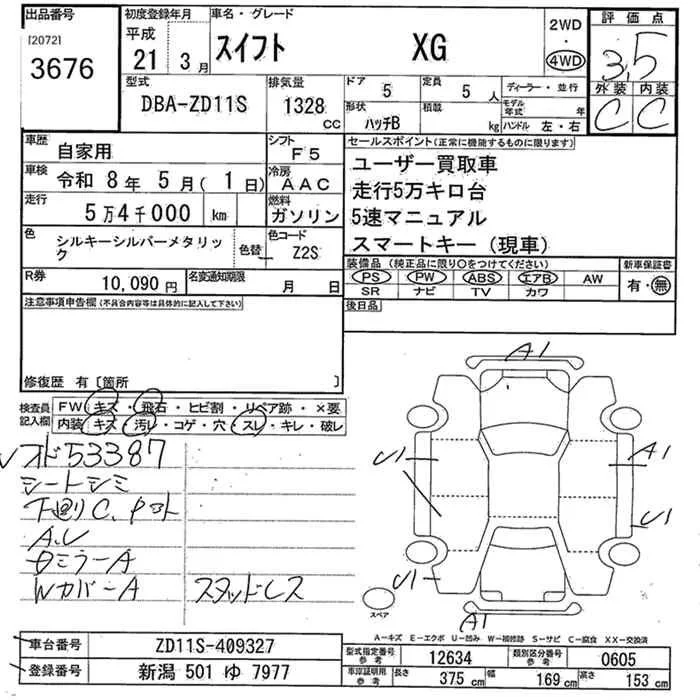 出品番号 初度登録年月 車名・グレード 評価点
[2072]
3676
平成
21 3月
スイフト XG
2WD
・
4WD
3.5
型式 排気量 ドア 定員 ディーラー・並行
DBA-ZD11S 1328 CC
5 5人
形状 積載 モデル年式 年
ハッチB kg ハンドル 左・右
外装 内装
C C
車歴 自家用 シフト F5
車検 令和 8年 5月(1日) 冷房 AAC
走行 5万4千000 km 燃料 ガソリン
色 シルキーシルバーメタリック 色替 色コード Z2S
R券 10,090円 名変通知期限 月 日
セールスポイント(正常に機能するものに限ります)
ユーザー買取車
走行5万キロ台
5速マニュアル
スマートキー(現車)
装備品(純正品に限り○をつけてください) 新車保証書
PS PW ABS エアB AW 有・無
SR ナビ TV カワ
後日品
注意事項申告欄(不具合内容等は具体的に記入して下さい)
修復歴 有〔箇所 〕
検査員記入欄
FW キズ・飛石・ヒビ割・リペア跡・×要
内装 キズ・汚レ・コゲ・穴・スレ・キレ・破レ
オド53387
シートシミ
下廻りC、Pコト
A.U
ミラーA
WカバーA スタッドレス
A1
U1 A1
U1
U1
A1
スペア
A-キズ E-エクボ U-凹み W-補修跡 S-サビ C-腐食 XX-交換済
車台番号 ZD11S-409327
登録番号 新潟 501 ゆ 7977
型式指定番号 参考 12634 類別区分番号 参考 0605
車庫証明用 参考 長さ 375 cm 幅 169 cm 高さ 153 cm